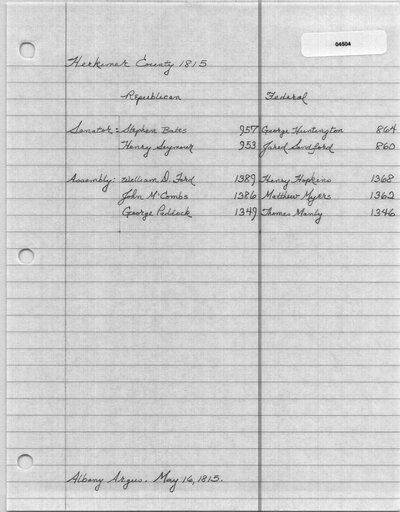 04504
Herkimer County 1815
Republican Federal
Senator: Stephen Bates 957 George Huntington 864
Henry Seymour 953 Jared Sandford 860
Assembly: William D. Ford 1389 Henry Hopkins 1368
John McCombs 1386 Matthew Myers 1362
George Paddock 1349 Thomas Manly 1346
Albany Argus. May 16, 1815.